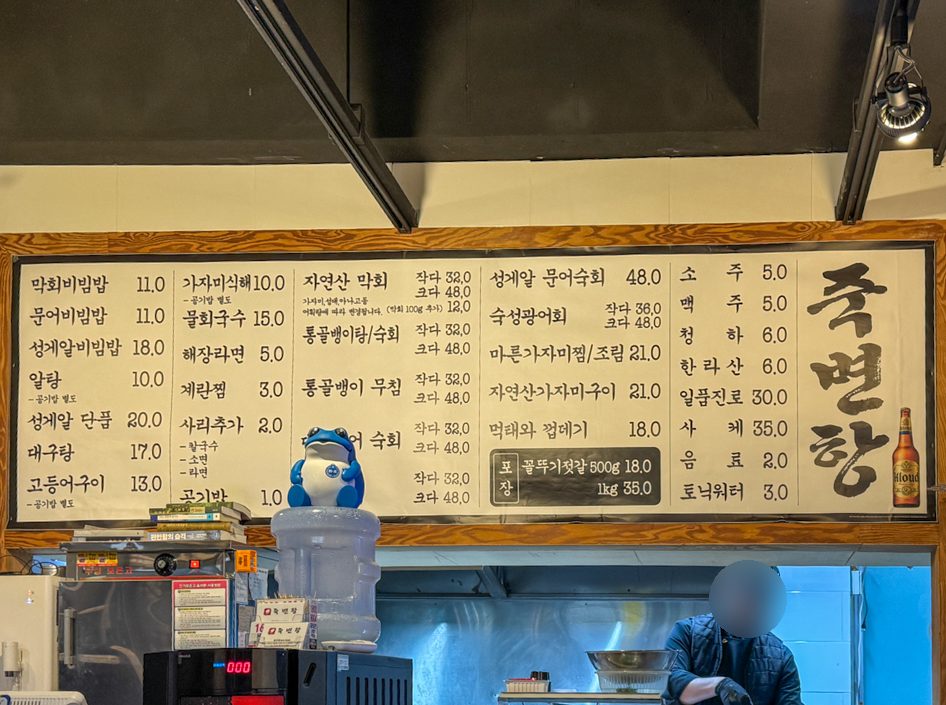 막회비빔밥 11.0
문어비빔밥 11.0
성게알비빔밥 18.0
알탕 10.0
- 공기밥 별도
성게알 단품 20.0
대구탕 17.0
고등어구이 13.0
- 공기밥 별도
가자미식해 10.0
- 공기밥 별도
물회국수 15.0
해장라면 5.0
계란찜 3.0
사리추가 2.0
- 칼국수
- 소면
- 라면
공기밥 1.0
자연산 막회 작다 32,0
크다 48,0
(막회 100g 추가) 12,0
통골뱅이탕/숙회 작다 32,0
크다 48,0
통골뱅이 무침 작다 32,0
크다 48,0
숙회 작다 32,0
크다 48,0
작다 32,0
크다 48,0
성게알 문어숙회 48.0
숙성광어회 작다 36,0
크다 48,0
마른가자미찜/조림 21.0
자연산가자미구이 21.0
먹태와 껍데기 18.0
포장
꼴뚜기젓갈 500g 18.0
1kg 35.0
소주 5.0
맥주 5.0
청하 6.0
한라산 6.0
일품진로 30.0
사케 35.0
음료 2.0
토닉워터 3.0
죽변항
Kloud
000
죽변항
죽변항